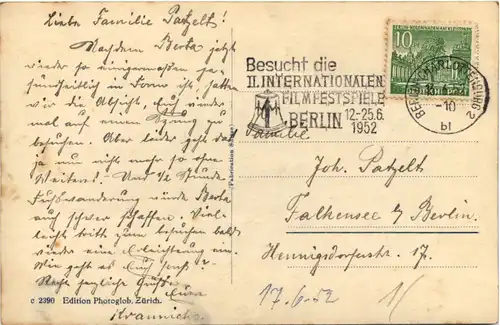 Liebe Familie Patzelt!
Nachdem Berta jetzt
wieder so einigermaßen her-
in Form ist, hatten
wir die Absicht, Euch wieder
mal auf einen Sprung zu
besuchen. Aber leider geht das
ja nun nicht mehr so ohne
Weiteres! Und ¾ Stunde
Fußwanderung würde Berta
auch schwer schaffen. Viel-
leicht tritt zum bald
wieder eine Erleichterung ein.
Wie geht es Euch sonst?
Recht herzliche Grüße
Eure
Krannichs
c 2390 Edition Photoglob, Zürich.
Besucht die
II. INTERNATIONALEN
FILMFESTSPIELE
BERLIN 12-25.6.
1952
10
BERLIN-CHARLOTTENBURG 2
-10
bl
Familie
Joh. Patzelt
Falkensee b/ Berlin.
Hennigsdorferstr. 17.
17.6.52